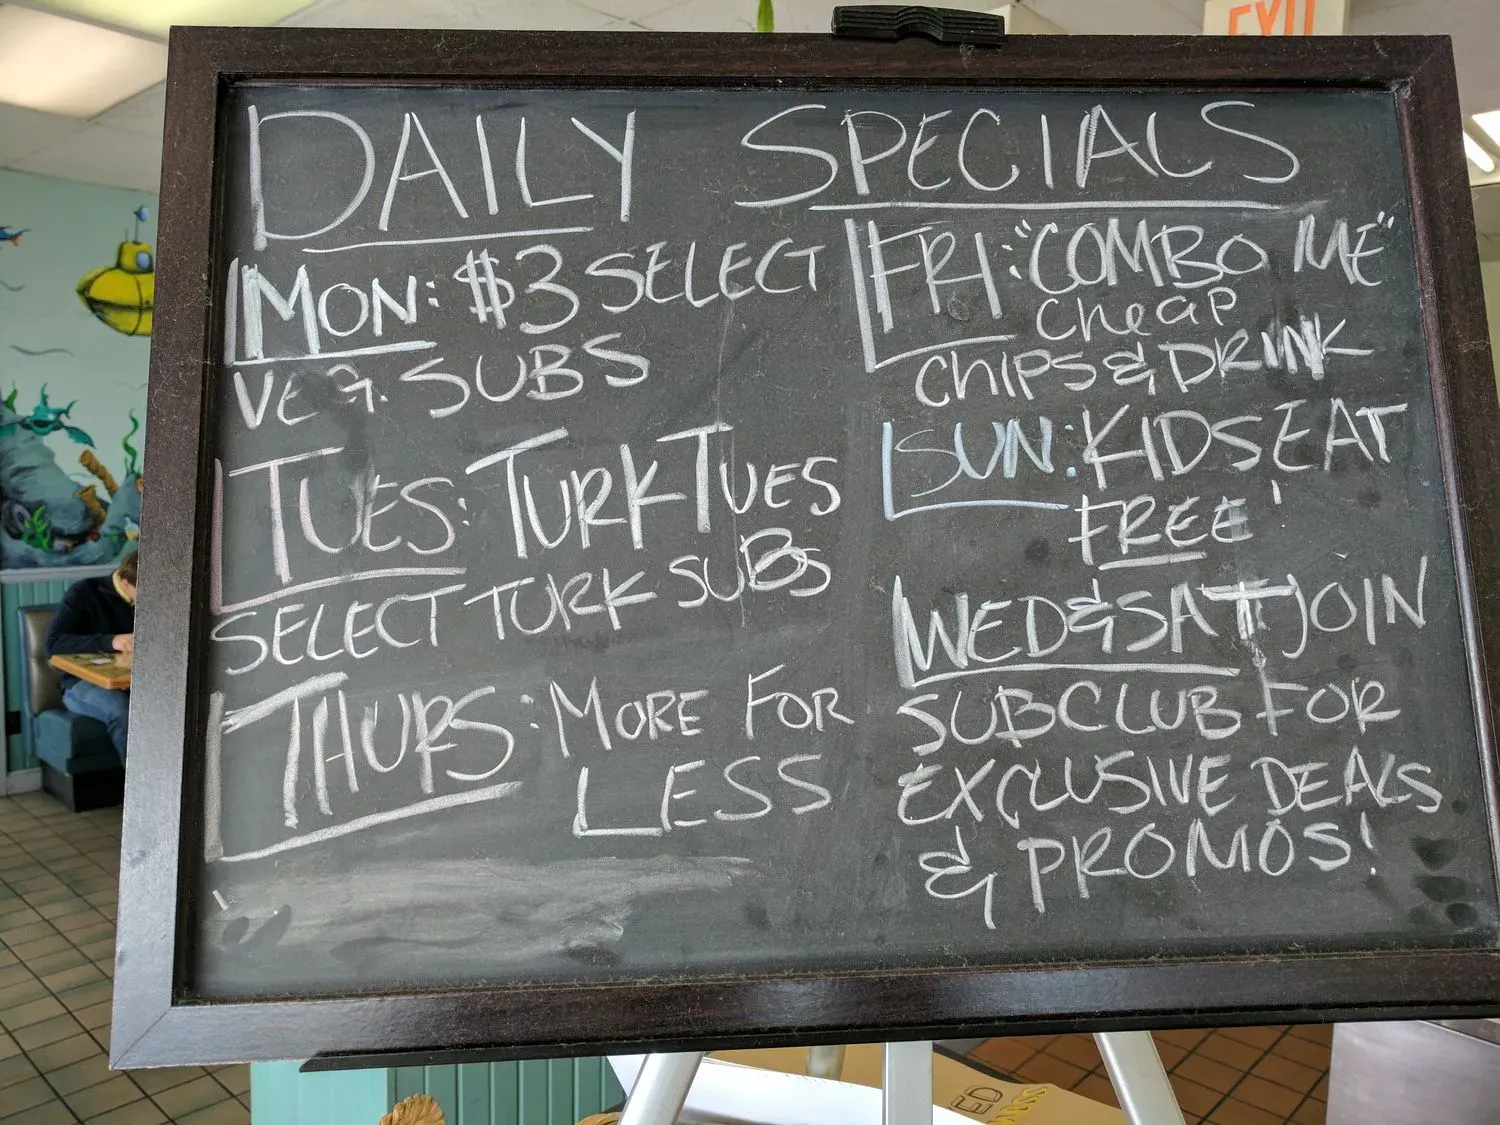 DAILY SPECIALS
MON: $3 SELECT
VEG. SUBS
TUES: TURKTUES
SELECT TURK SUBS
THURS: MORE FOR
LESS
FRI: "COMBO ME"
cheap
CHIPS & DRINK
SUN: KIDS EAT
FREE!
WED & SAT JOIN
SUBCLUB FOR
EXCLUSIVE DEALS
& PROMOS!
EXIT
ED